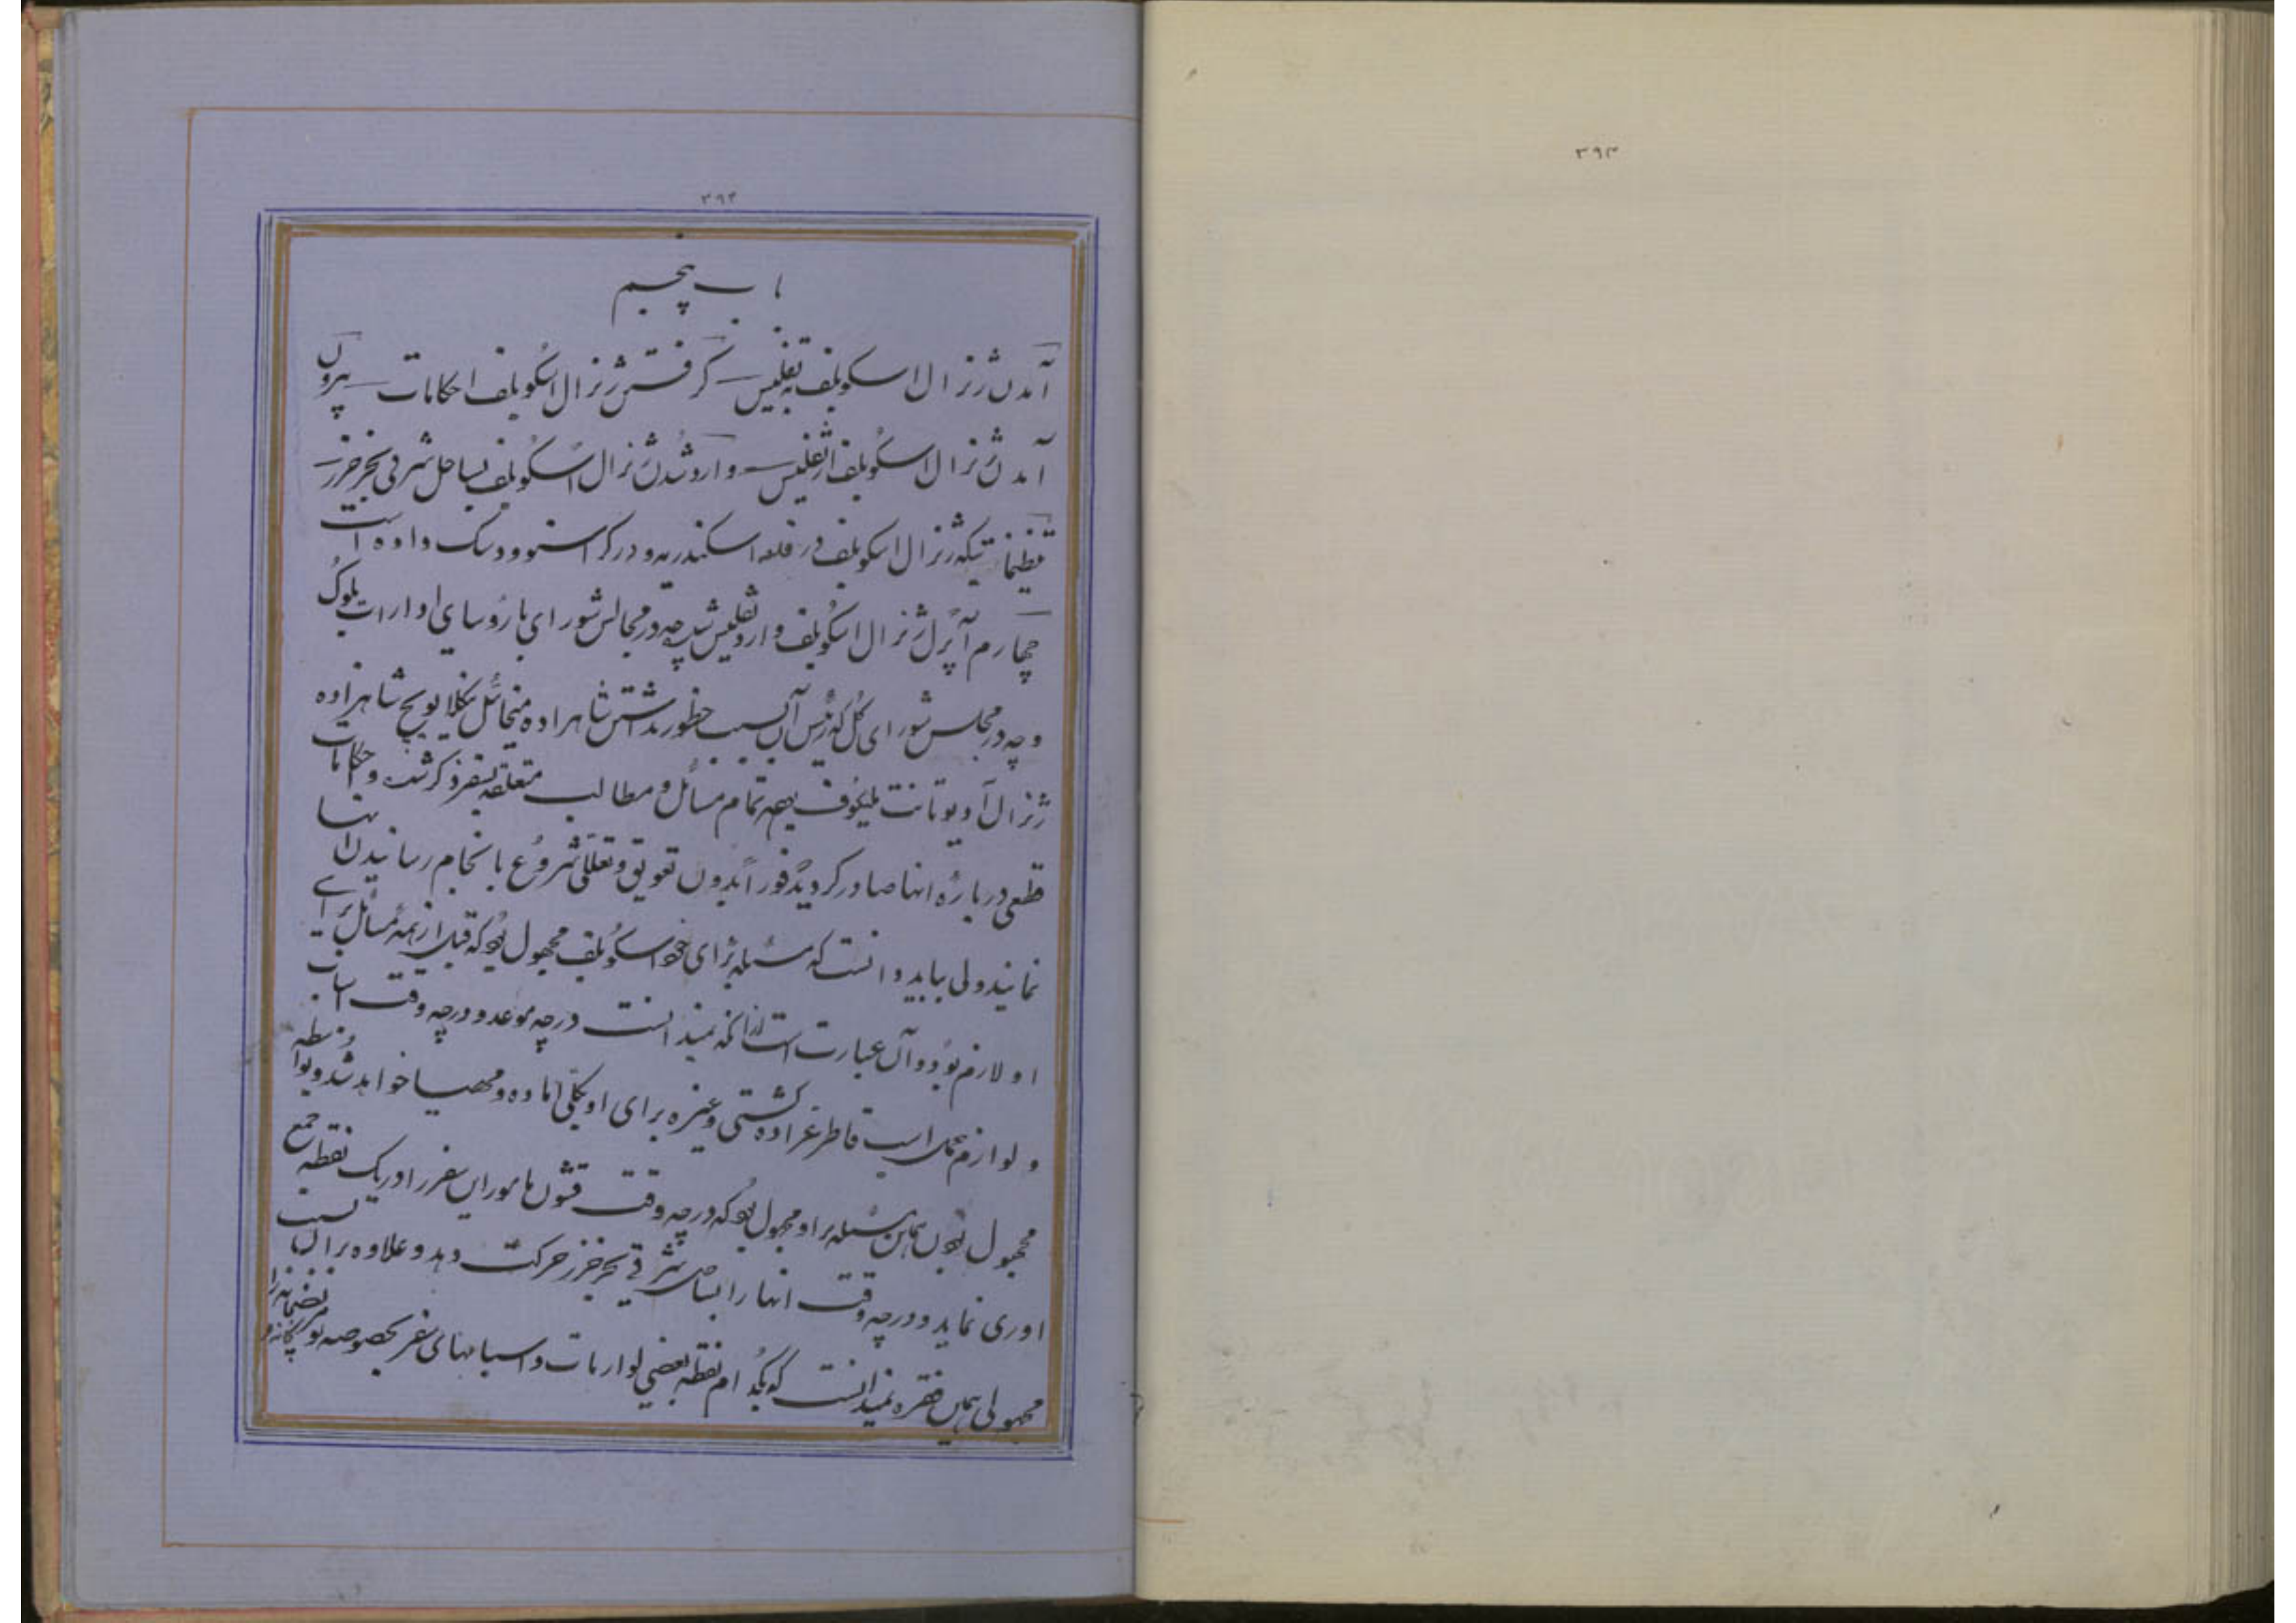 ۳۹۳
۳۹۴
باب پنجم
آمدن ژنرال اسکوبلف به تفلیس گرفتن ژنرال اسکوبلف احکامات بیرون
آمدن ژنرال اسکوبلف از تفلیس وارد شدن ژنرال اسکوبلف بساحل شرقی بحر خزر
تنظیماتیکه ژنرال اسکوبلف در قلعه اسکندریه و در کراسنوودسک داده است
چهارم آپرل ژنرال اسکوبلف وارد تفلیس شد چه در مجالس شورای با روسای ادارات بلوک
و چه در مجلس شورای کل که رئیس آن بسبب حضور نداشتن شاهزاده میخائل نیکلایویچ شاهزاده
ژنرال آدیوتانت ملیکوف بود تمام مسائل و مطالب متعلقه بسفر ذکر شد و احکامات
قطعی درباره انها صادر کردید فوراً بدون تعویق و تعللی شروع بانجام رسانیدن انها
نمایند ولی بباید دانست که مسئله برای خود اسکوبلف مجهول بود که قبل از همه مسائل برای
او لازم بود و آن عبارت است از انکه نمیدانست در چه موعد و در چه وقت اسباب
و لوازم حمل اسب قاطر عراده کشتی و غیره برای او بکلی اماده و مهیا خواهد شد و بواسطه
مجهول بودن همین مسئله بر او مجهول بود که در چه وقت قشون مامور این سفر را در یک نقطه جمع
اوری نماید و در چه وقت انها را بساحل شرقی بحر خزر حرکت دهد و علاوه بر ان بسبب
مجهولی همین فقره نمیدانست که بکدام نقطه بعضی لوازمات و اسبابهای سفر بخصوصه توپخانه و